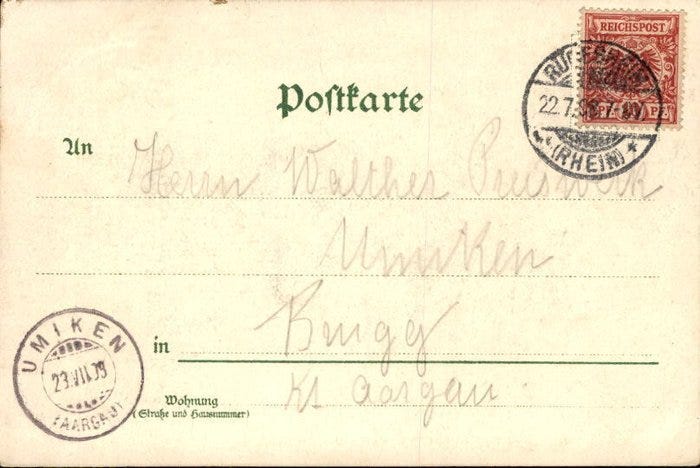 REICHSPOST
22.7.
(RHEIN)
Postkarte
An Herrn Walther Preiswerk
Umiken
in Brugg
Kt Aargau
Wohnung
(Straße und Hausnummer)
UMIKEN
23.VII.99
(AARGAU)